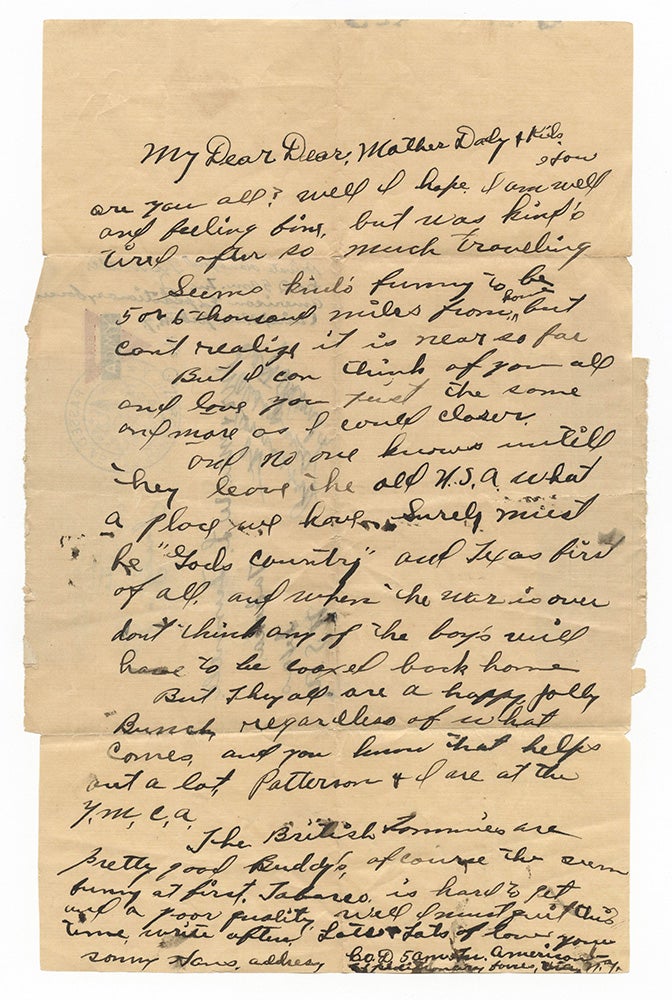 My Dear Dear, Mother Dady & Kids.
How
are you all? well I hope. I am well
and feeling fine, but was kind'o
tired after so much traveling
Seems kind'o funny to be
5 or 6 thousand miles from home, but
cant realize it is near so far
But I can think of you all
and love you just the same
and more as I could closer.
and no one knows untill
they leave the old U.S.A. what
a place we have. Surely must
be "Gods country" and Texas first
of all, and when the war is over
don't think any of the boy's will
have to be coaxed back home
But they all are a happy, jolly
Bunch, regardless of what
comes, and you know that helps
out a lot, Patterson & I are at the
Y.M.C.A.
The British Tommies are
pretty good Buddys, of course the seem
funny at first. Tabacco, is hard to get
and a poor quality, well I must quit this
time, write often, Lots & Lots of love your
sonny address Co. D. 5 American
Expeditionary Forces, N.Y.